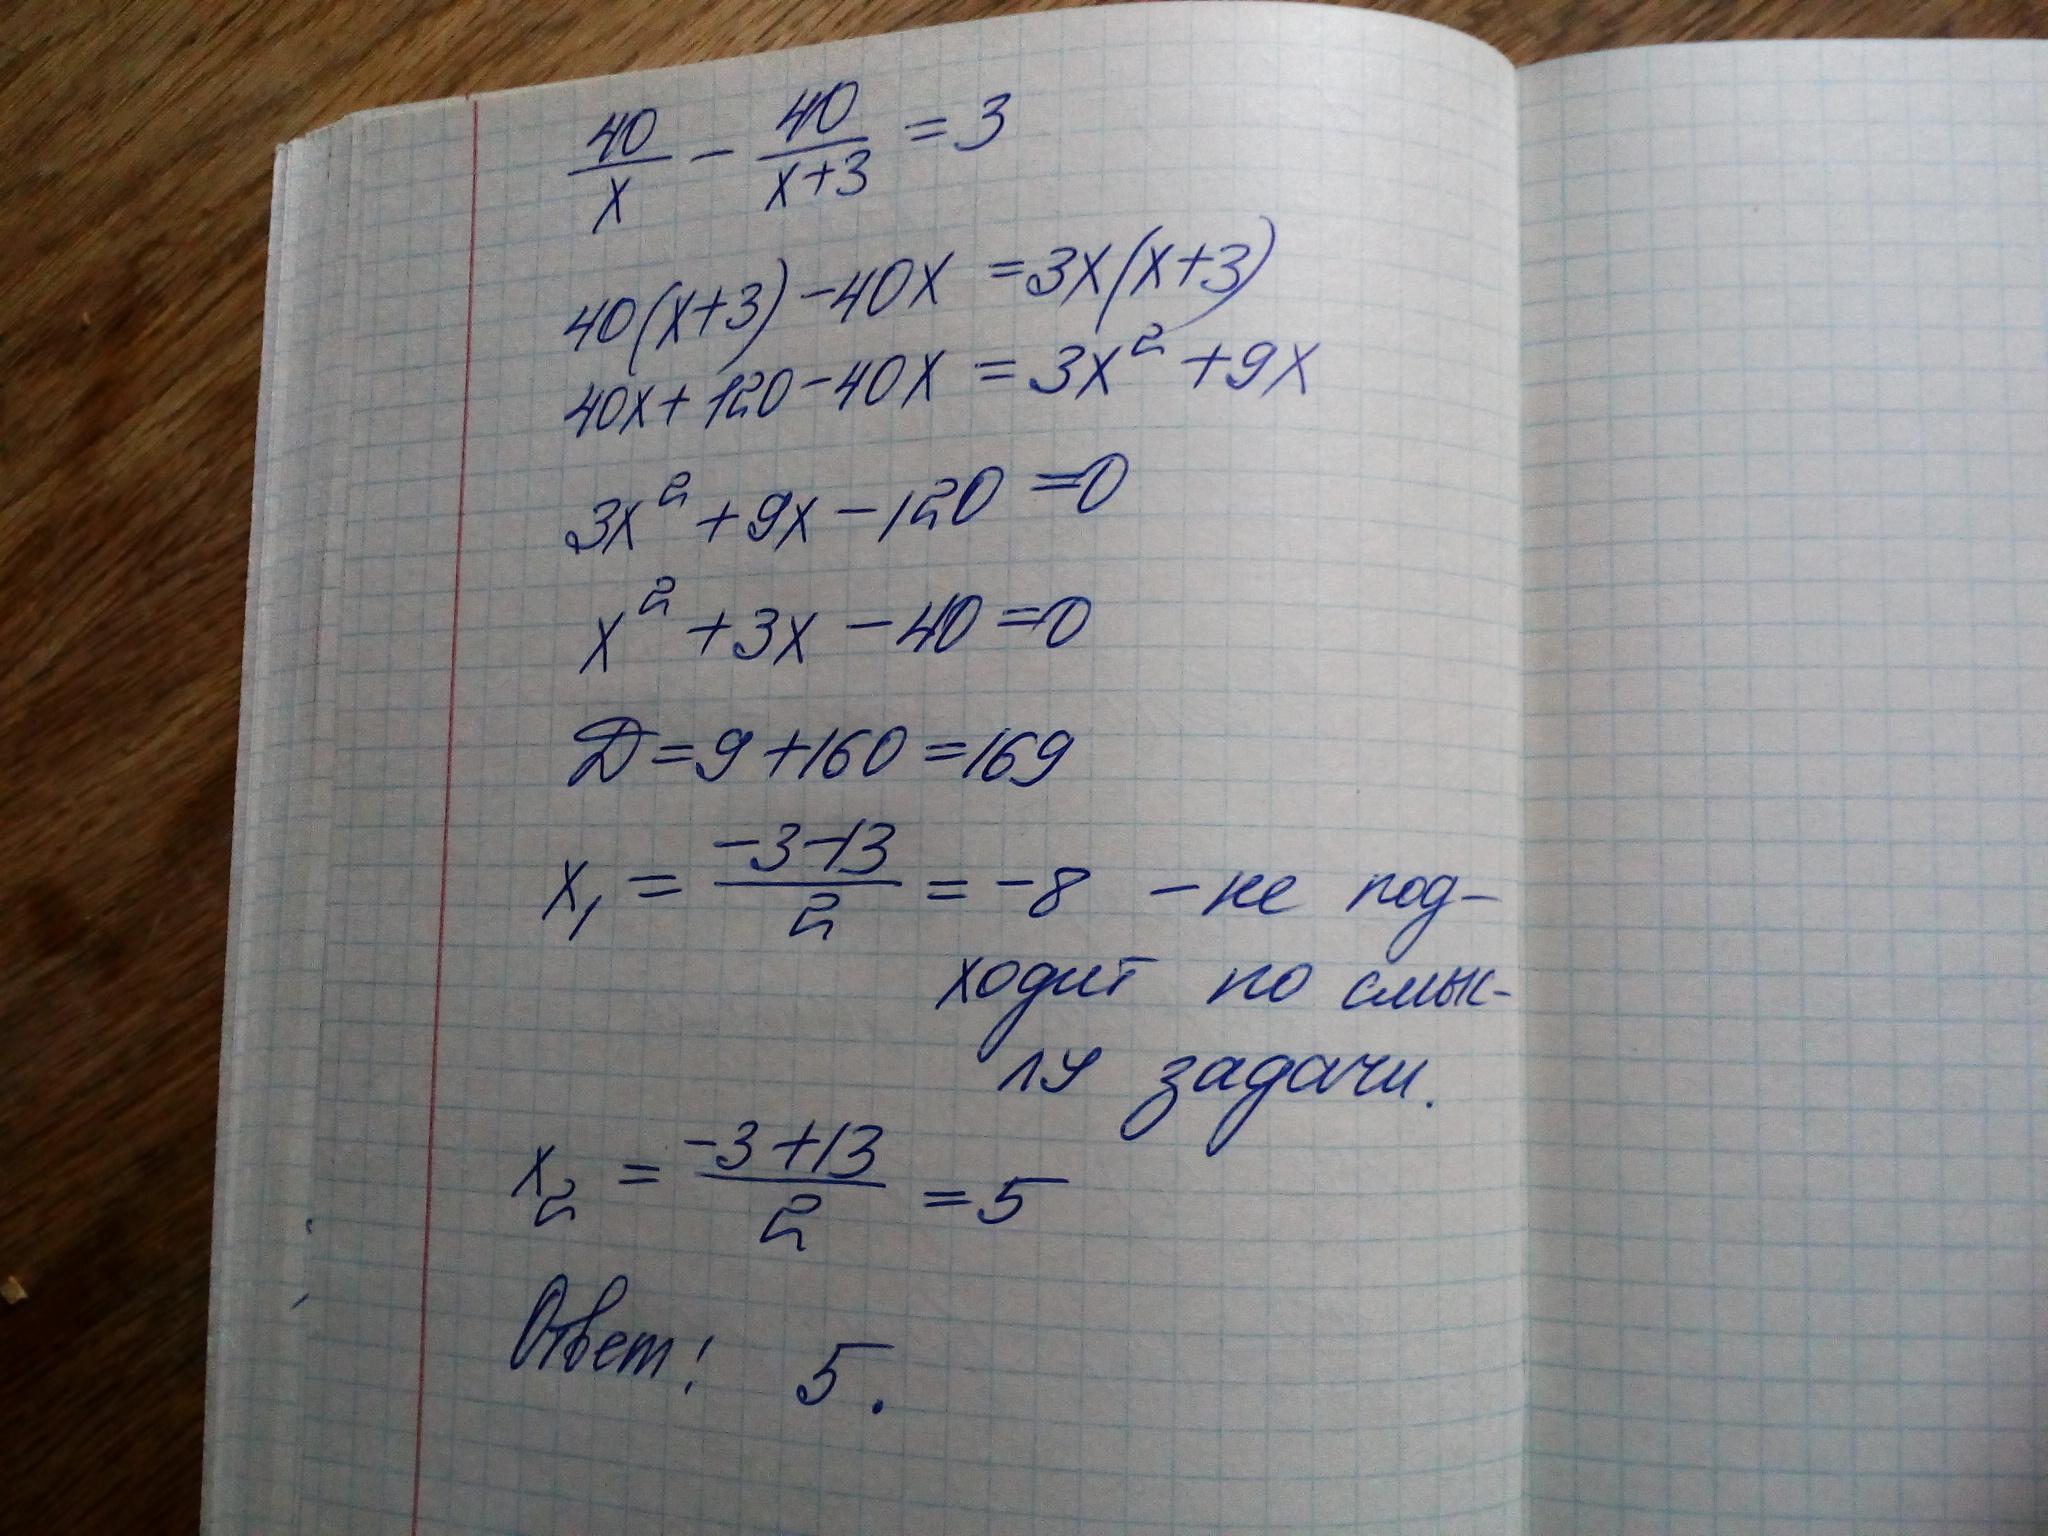 40/x - 40/(x+3) = 3
40(x+3) - 40x = 3x(x+3)
40x + 120 - 40x = 3x² + 9x
3x² + 9x - 120 = 0
x² + 3x - 40 = 0
D = 9 + 160 = 169
x₁ = (-3-13)/2 = -8 - не под-
ходит по смыс-
лу задачи.
x₂ = (-3+13)/2 = 5
Ответ: 5.